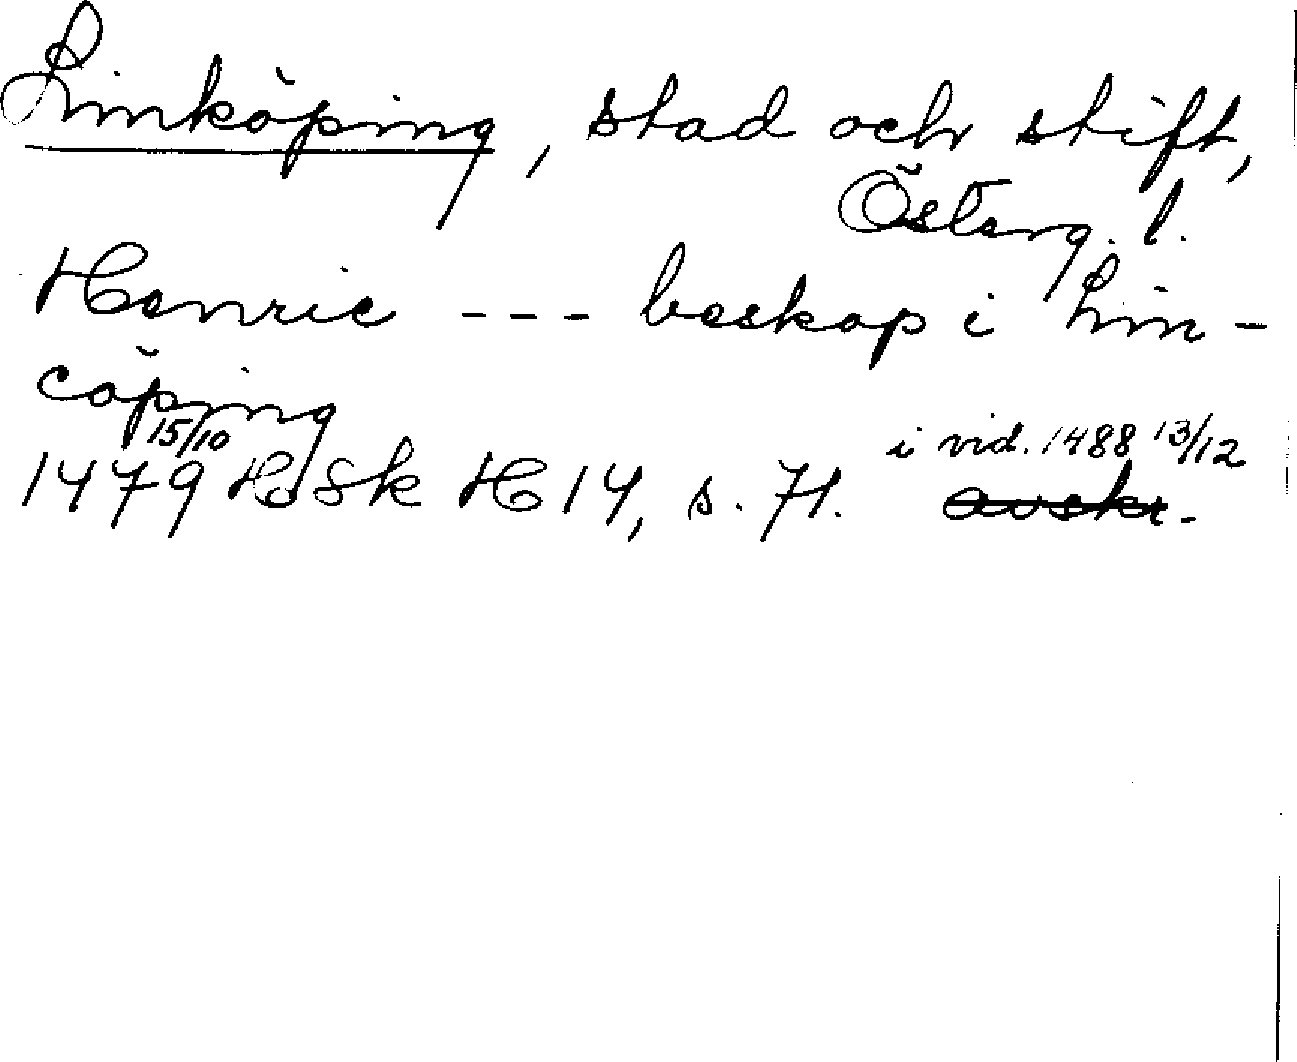 Linköping, stad och stift,
Österg. l.
Henric --- beskop i Lin-
cöping
1479 15/10 HSk H 14, s. 71. i vid. 1488 13/12
avskr.